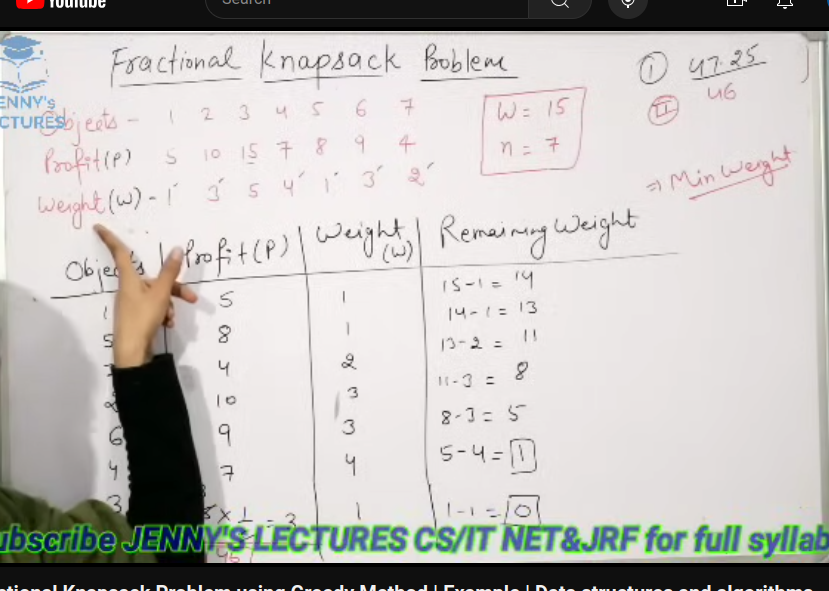 YouTube
Search
Fractional Knapsack Problem
① 47.25
Ⅱ 46
ENNY's
CTURES
Objects - 1 2 3 4 5 6 7
Profit (P) 5 10 15 7 8 9 4
Weight (W) - 1 3 5 4 1 3 2
W = 15
n = 7
⇒ Min Weight
Objects Profit (P) Weight (W) Remaining Weight
1 5 1 15-1 = 14
5 8 1 14-1 = 13
4 2 13-2 = 11
2 10 3 11-3 = 8
6 9 3 8-3 = 5
4 7 4 5-4 = 1
3 1 1-1 = 0
ubscribe JENNY'S LECTURES CS/IT NET&JRF for full syllab
46
ctional Knapsack Problem using Greedy Method | Example | Data structures and algorithms